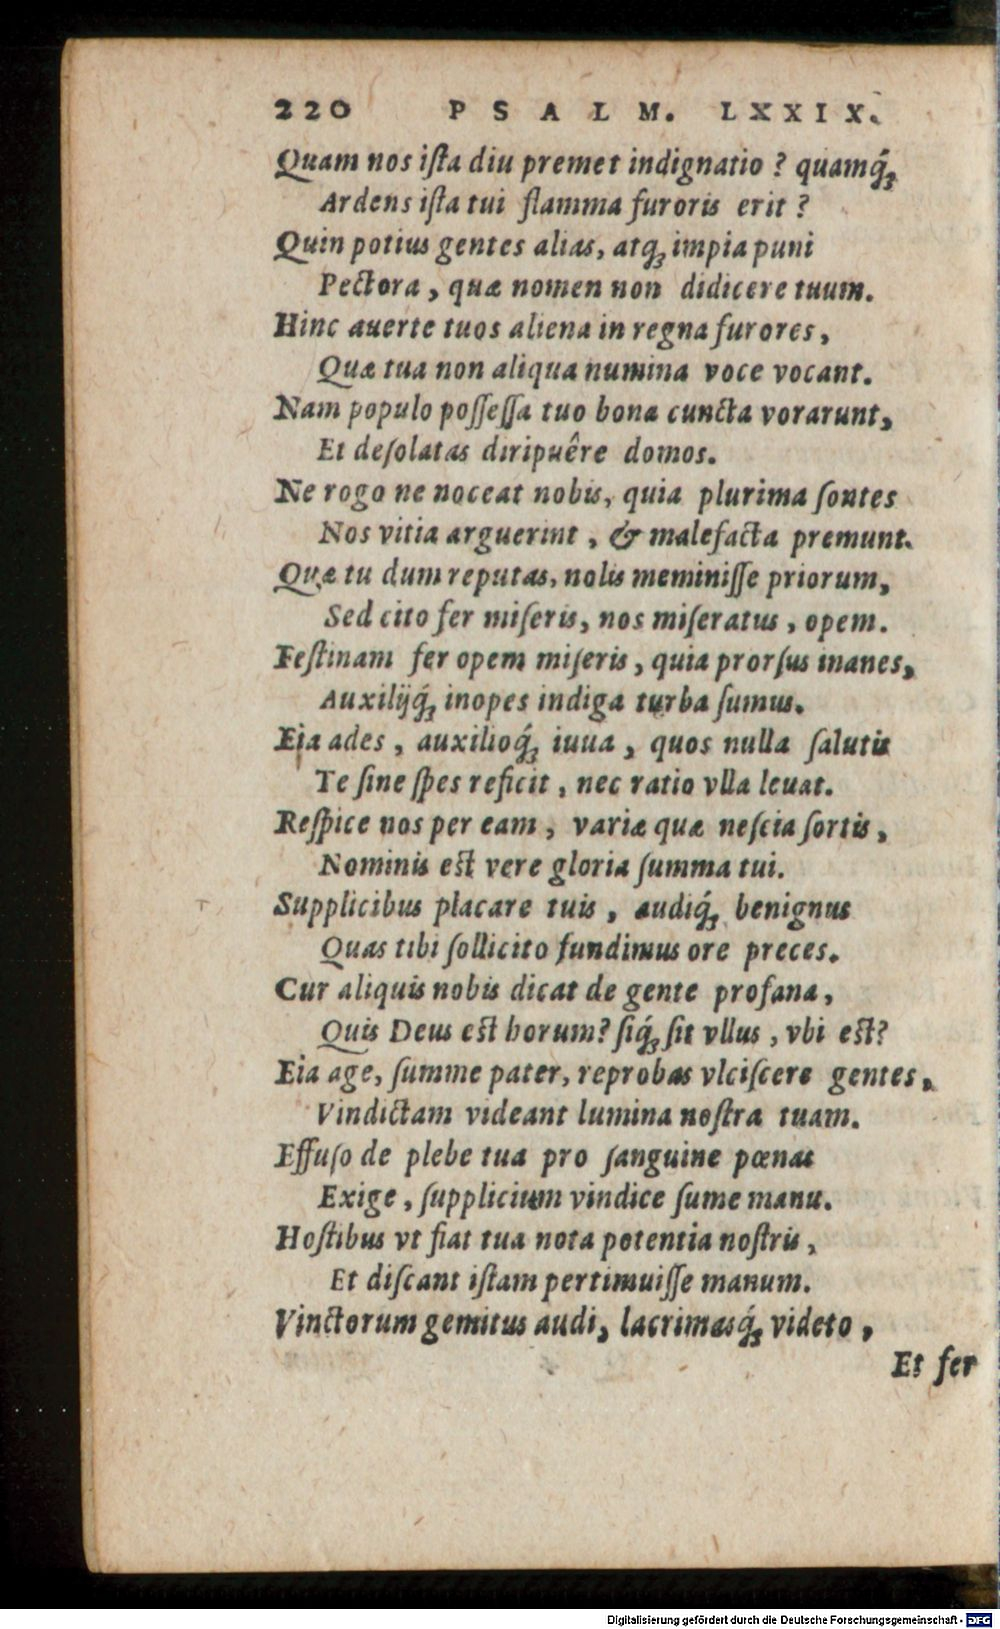 220 PSALM. LXXIX.
Quam nos iſta diu premet indignatio ? quamq́ꝫ
Ardens iſta tui flamma furoris erit ?
Quin potius gentes alias, atqꝫ impia puni
Pectora , quæ nomen non didicere tuum.
Hinc auerte tuos aliena in regna furores ,
Quæ tua non aliqua numina voce vocant.
Nam populo poſſeſſa tuo bona cuncta vorarunt,
Et deſolatas diripuêre domos.
Ne rogo ne noceat nobis, quia plurima ſontes
Nos vitia arguerint , & malefacta premunt.
Quæ tu dum reputas, nolis meminiſſe priorum,
Sed cito fer miſeris, nos miſeratus , opem.
Feſtinam fer opem miſeris , quia prorſus inanes,
Auxilijq́ꝫ inopes indiga turba ſumus.
Eia ades , auxilioq́ꝫ iuua , quos nulla ſalutis
Te ſine ſpes reficit , nec ratio vlla leuat.
Reſpice nos per eam , variæ quæ neſcia ſortis ,
Nominis eſt vere gloria ſumma tui.
Supplicibus placare tuis , audiq́ꝫ benignus
Quas tibi ſollicito fundimus ore preces.
Cur aliquis nobis dicat de gente profana ,
Quis Deus eſt horum? ſiq́ꝫ ſit vllus , vbi eſt?
Eia age, ſumme pater, reprobas vlciſcere gentes ,
Vindictam videant lumina noſtra tuam.
Effuſo de plebe tua pro ſanguine pœnas
Exige , ſupplicium vindice ſume manu.
Hoſtibus vt fiat tua nota potentia noſtris ,
Et diſcant iſtam pertimuiſſe manum.
Vinctorum gemitus audi, lacrimasq́ꝫ videto ,
Et fer
Digitalisierung gefördert durch die Deutsche Forschungsgemeinschaft - DFG